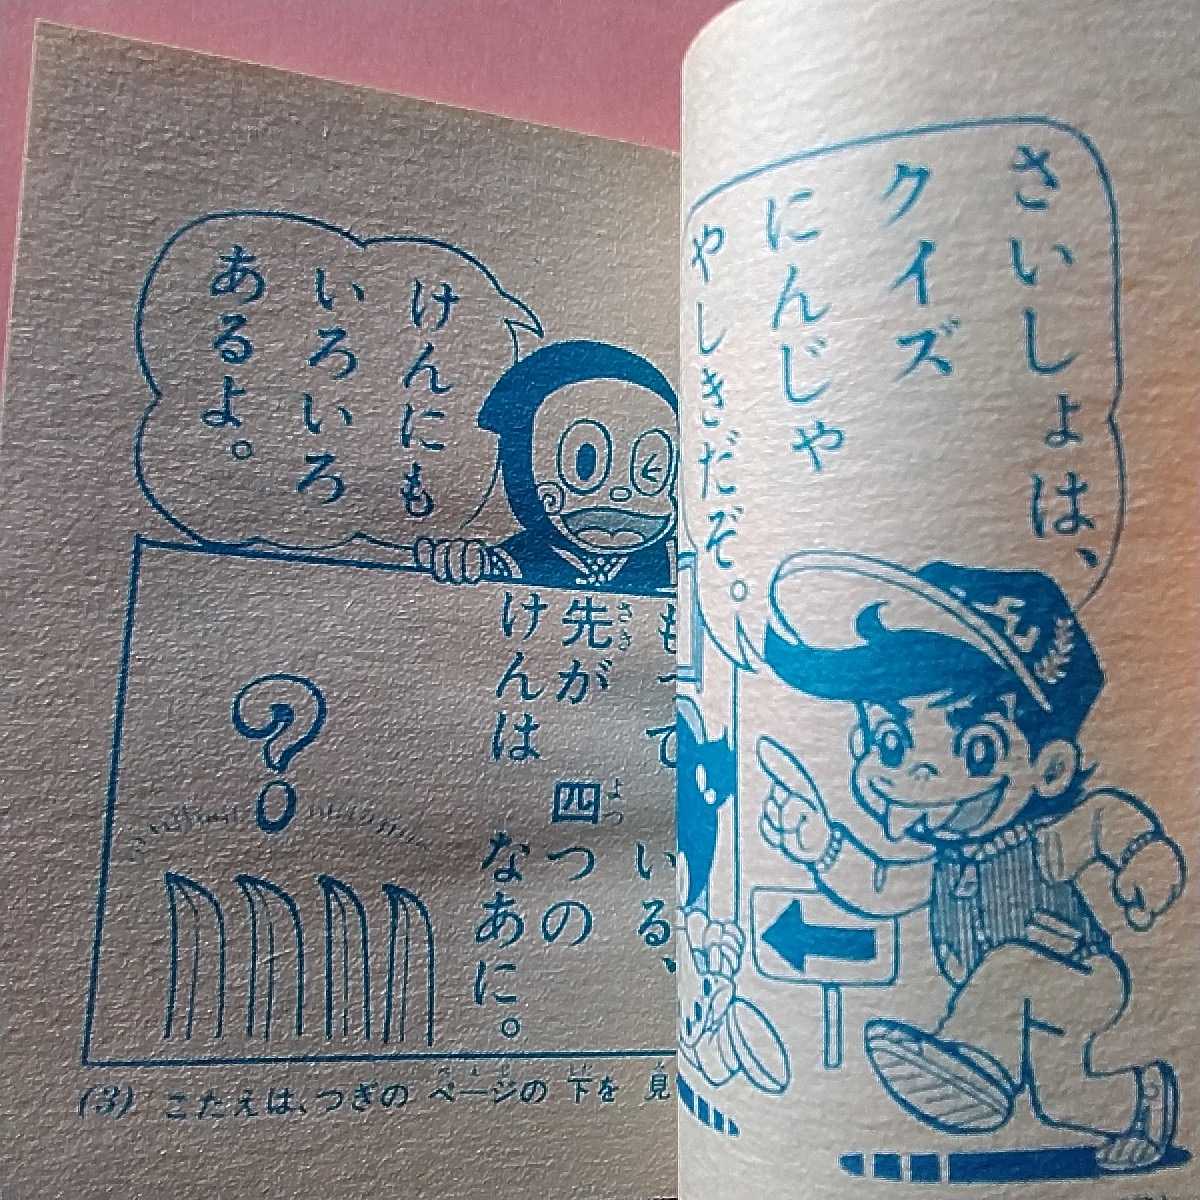 さいしょは、
クイズ
にんじゃ
やしきだぞ。
けんにも
いろいろ
あるよ。
もっている、
先が四つの
さき よつ
けんはなあに。
(3) こたえは、つぎの ページの 下を 見